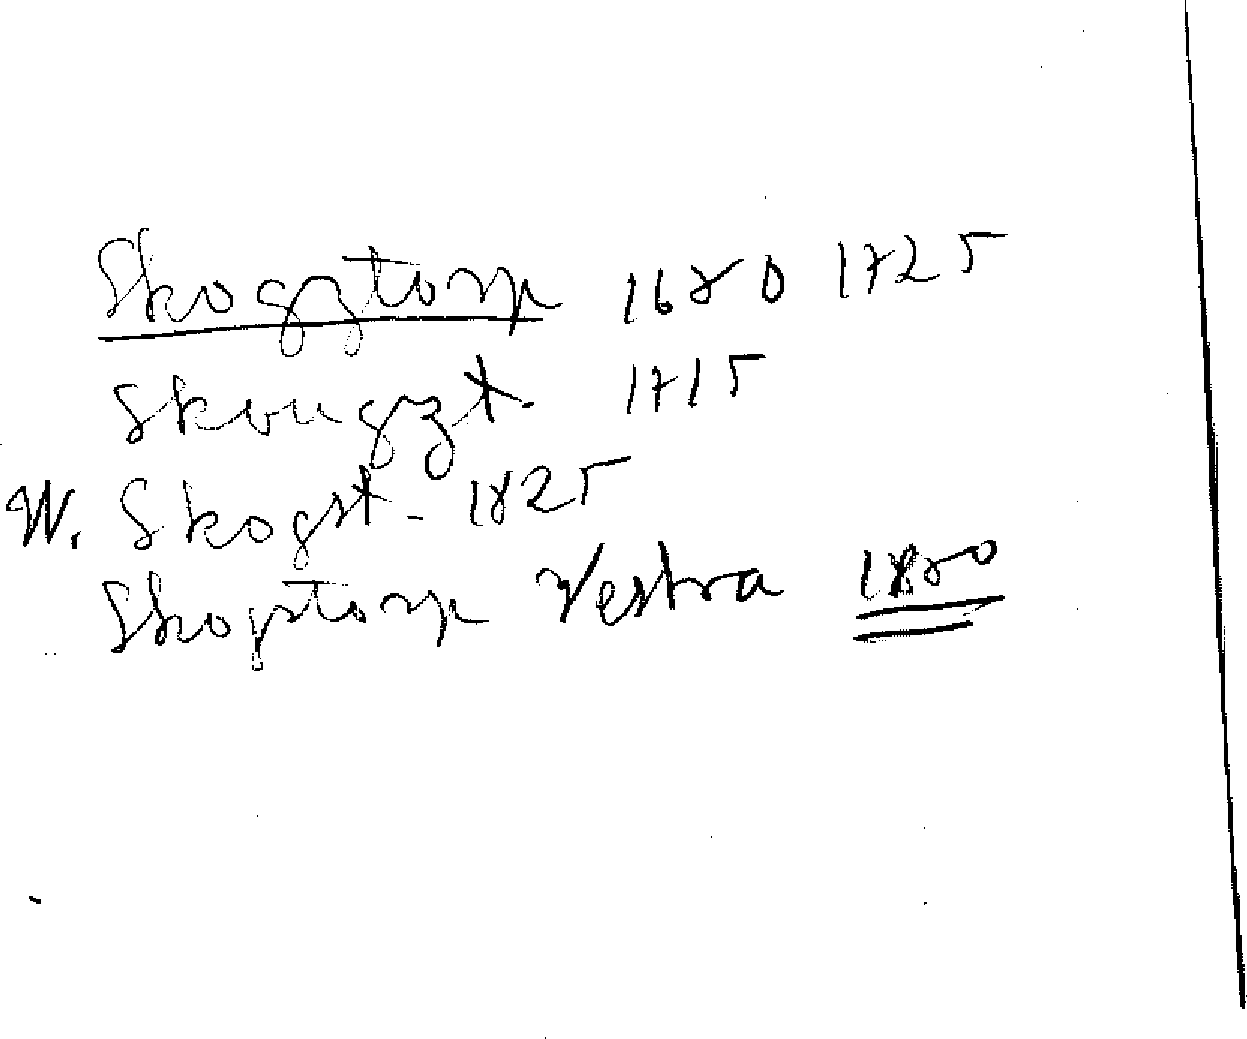 Skogztorp 1680 1725
Skougzt. 1715
W. Skogst. 1825
Skogstorp Vestra 1850